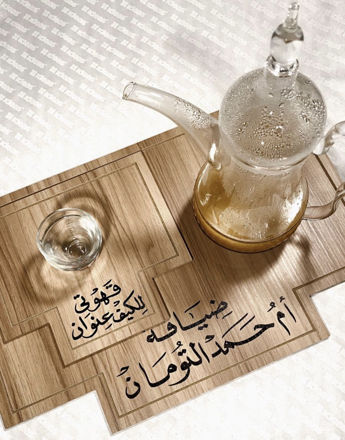 قهوتي
للكيف عنوان
ضيافة
أم حمد التومان